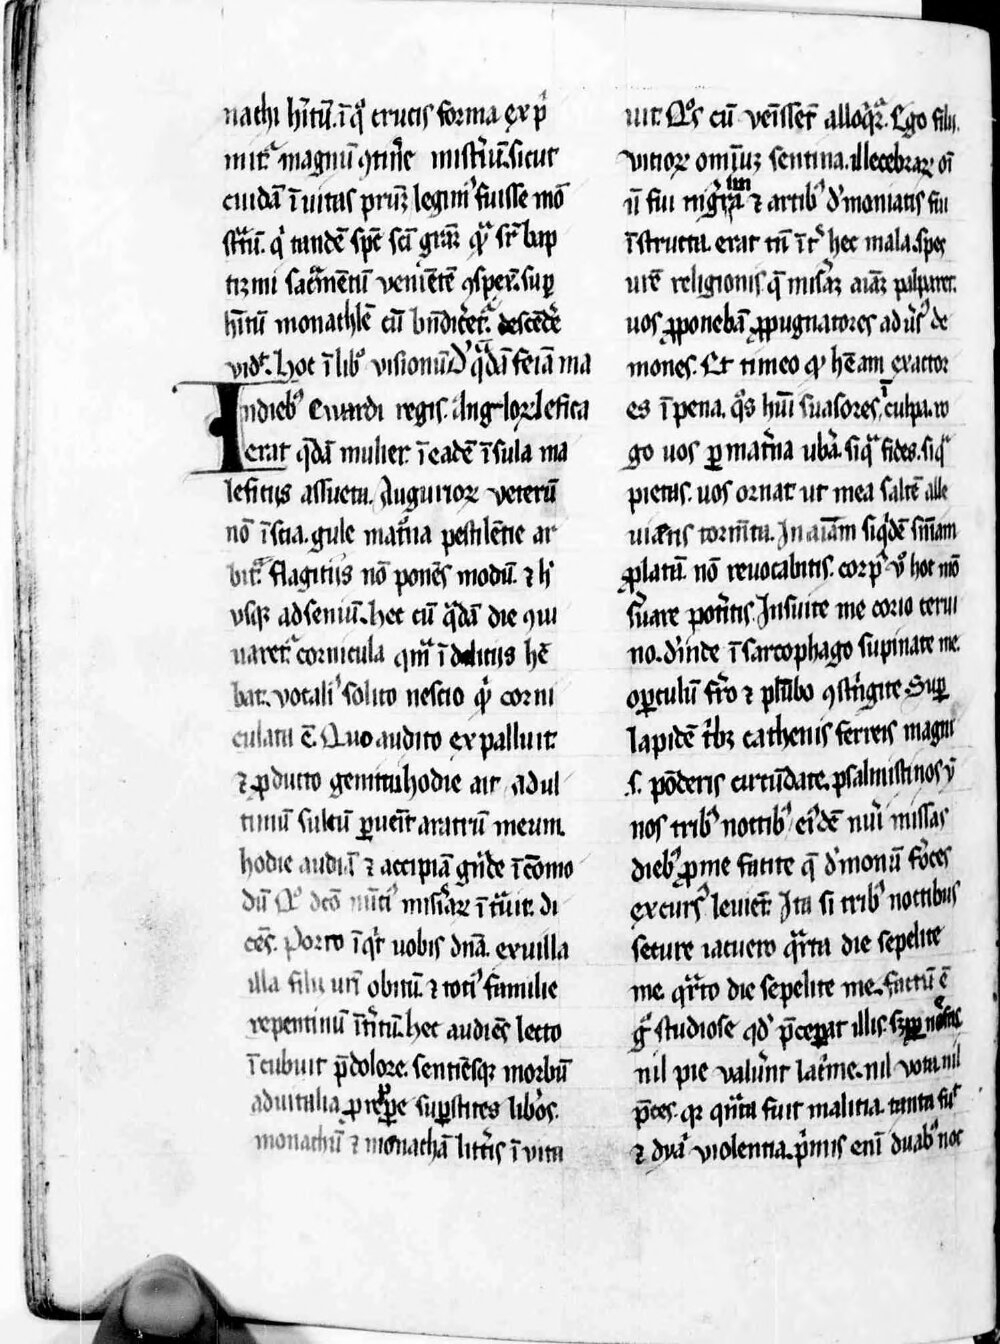 nachi hītū. ī qͦ crucis forma exp̄
mit᷑ magnū ꝯtinē mist̄iū. sicut
cuidā ī uitas prū legim᷒ fuisse mō
st̄tū. q̄ tandē spē sc̄i
tizmi sac̄mentū venientē ꝯspex̄. sup̄
hītū monachilē cū bn̄dicēt᷑. descēdē
vidit. hoc ī lib᷒ visionū D᷒ q̄dā feīa ma
Indieb᷒ Ewardi regis. Anglorꝝ lefica
erat q̄dā mulier. ī eadē īsula ma
leficiis assueta. Auguriorꝝ veterū
nō īscia. gule mat̄na pestilētie ar
bit᷑. flagitiis nō ponēs modū. ⁊ h᷒
usqꝫ ad seniū. hec cū q̄dā die ꝯui
uaret᷑. cornicula qm̄ ī deliciis hē
bat. vocali᷒ solito nescio qͥ corni
culata ē. Quo audito expalluit.
⁊ ꝓducto gemitu hodie ait ad ul
timū sulcū ꝑuēit aratrū meum.
hodie audiā ⁊ accipiā gͣde īcōmo
dū. Qͦ dc̄o nūci᷒ misiarꝝ īt̄uit. di
cēs. Porro īqͥt uobis dn̄a. ex uilla
illa filii ur̄i obitū. ⁊ toti᷒ familie
repentinū īt̄itū. hec audiēs lecto
īcubuit p̄ dolore. sentiēsqꝫ morbū
ad uitalia ꝓrepe suꝑstites lib̄os.
monachū ⁊ monachā litt̄is īvita
uit. Qͦs cū veīsset᷑ alloqͥt᷑. Ego filii
vitiorꝝ omiūꝫ sentina. illecebrarꝝ oī
ū fui ⁊ artib᷒ d᷒moniacis fui
īstructa. erat tn̄ īt᷑ hec mala. spes
ure religionis. q̄ misaꝝ aiāꝫ palparet.
uos ꝓponebā ꝓpugnatores ad ūs᷒ de
mones. Et timeo qͦ hēam exactor
es ī pena. qͦs hūi suasores ī culpa. ro
go uos ꝑ mat̄na ubā. siqͣ fides. siqͣ
pietas. uos ornat ut mea saltē alle
uietis torm̄ta. In aiām siqͥdē sn̄iam
ꝓlatā. nō reuocabitis. corp᷒ ū hoc mō
s̄uare pot̄itis. Insuite me corio cerui
no. d᷒inde ī sarcophago supinate me.
oꝑculū f̄ro ⁊ plūbo ꝯst̄igite. Sup̄
lapidē t̄bꝫ cathenis ferreis magni
.s. pōderis circūdate. psalmisti nos ꝯ
nos trib᷒ noctib᷒ eīdē nūi missas
dieb᷒ ꝓ me facite q̄ d᷒monū f̄oces
excurs᷒ leuiēt. Ita si trib᷒ noctibus
secure iacuero qͣrta die sepelite
me. qͣrto die sepelite me. factū ē
gͦ studiose qd̄ p̄ceperat illis.
nil pie valūnt lac̄me. nil vota. nil
p̄ces. qꝛ qͣnta fuit malitia. tanta fuit
⁊ dyaboli violentia. p̄mis enī duab᷒ noc